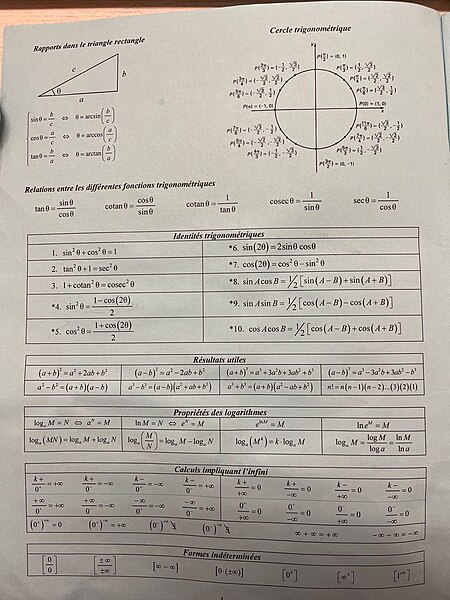 Rapports dans le triangle rectangle
Cercle trigonométrique
c
b
θ
a
sinθ = b/c ⇔ θ = arcsin(b/c)
cosθ = a/c ⇔ θ = arccos(a/c)
tanθ = b/a ⇔ θ = arctan(b/a)
y
x
P(π/2) = (0, 1)
P(π) = (-1, 0)
P(0) = (1, 0)
P(3π/2) = (0, -1)
Relations entre les différentes fonctions trigonométriques
tanθ = sinθ/cosθ cotanθ = cosθ/sinθ cotanθ = 1/tanθ cosecθ = 1/sinθ secθ = 1/cosθ
Identités trigonométriques
1. sin²θ + cos²θ = 1
2. tan²θ + 1 = sec²θ
3. 1 + cotan²θ = cosec²θ
*4. sin²θ = (1 − cos(2θ))/2
*5. cos²θ = (1 + cos(2θ))/2
*6. sin(2θ) = 2sinθ cosθ
*7. cos(2θ) = cos²θ − sin²θ
*8. sin A cos B = 1/2 [sin(A−B) + sin(A+B)]
*9. sin A sin B = 1/2 [cos(A−B) − cos(A+B)]
*10. cos A cos B = 1/2 [cos(A−B) + cos(A+B)]
Résultats utiles
(a+b)² = a² + 2ab + b² (a−b)² = a² − 2ab + b² (a+b)³ = a³ + 3a²b + 3ab² + b³ (a−b)³ = a³ − 3a²b + 3ab² − b³
a² − b² = (a+b)(a−b) a³ − b³ = (a−b)(a² + ab + b²) a³ + b³ = (a+b)(a² − ab + b²) n! = n(n−1)(n−2)...(3)(2)(1)
Propriétés des logarithmes
logₐ M = N ⇔ aᴺ = M ln M = N ⇔ eᴺ = M e^(ln M) = M ln eᴹ = M
logₐ(MN) = logₐ M + logₐ N logₐ(M/N) = logₐ M − logₐ N logₐ(Mᵏ) = k · logₐ M logₐ M = log M/log a = ln M/ln a
Calculs impliquant l'infini
k+/0⁺ = +∞ k+/0⁻ = −∞ k−/0⁺ = −∞ k−/0⁻ = +∞ k+/+∞ = 0 k+/−∞ = 0 k−/+∞ = 0 k−/−∞ = 0
+∞/0⁺ = +∞ +∞/0⁻ = −∞ −∞/0⁺ = −∞ −∞/0⁻ = +∞ 0⁺/+∞ = 0 0⁺/−∞ = 0 0⁻/+∞ = 0 0⁻/−∞ = 0
∞ + ∞ = +∞ −∞ − ∞ = −∞
Formes indéterminées
[0/0] [±∞/±∞] [∞ − ∞] [0·(±∞)] [0⁰] [∞⁰] [1^±∞]